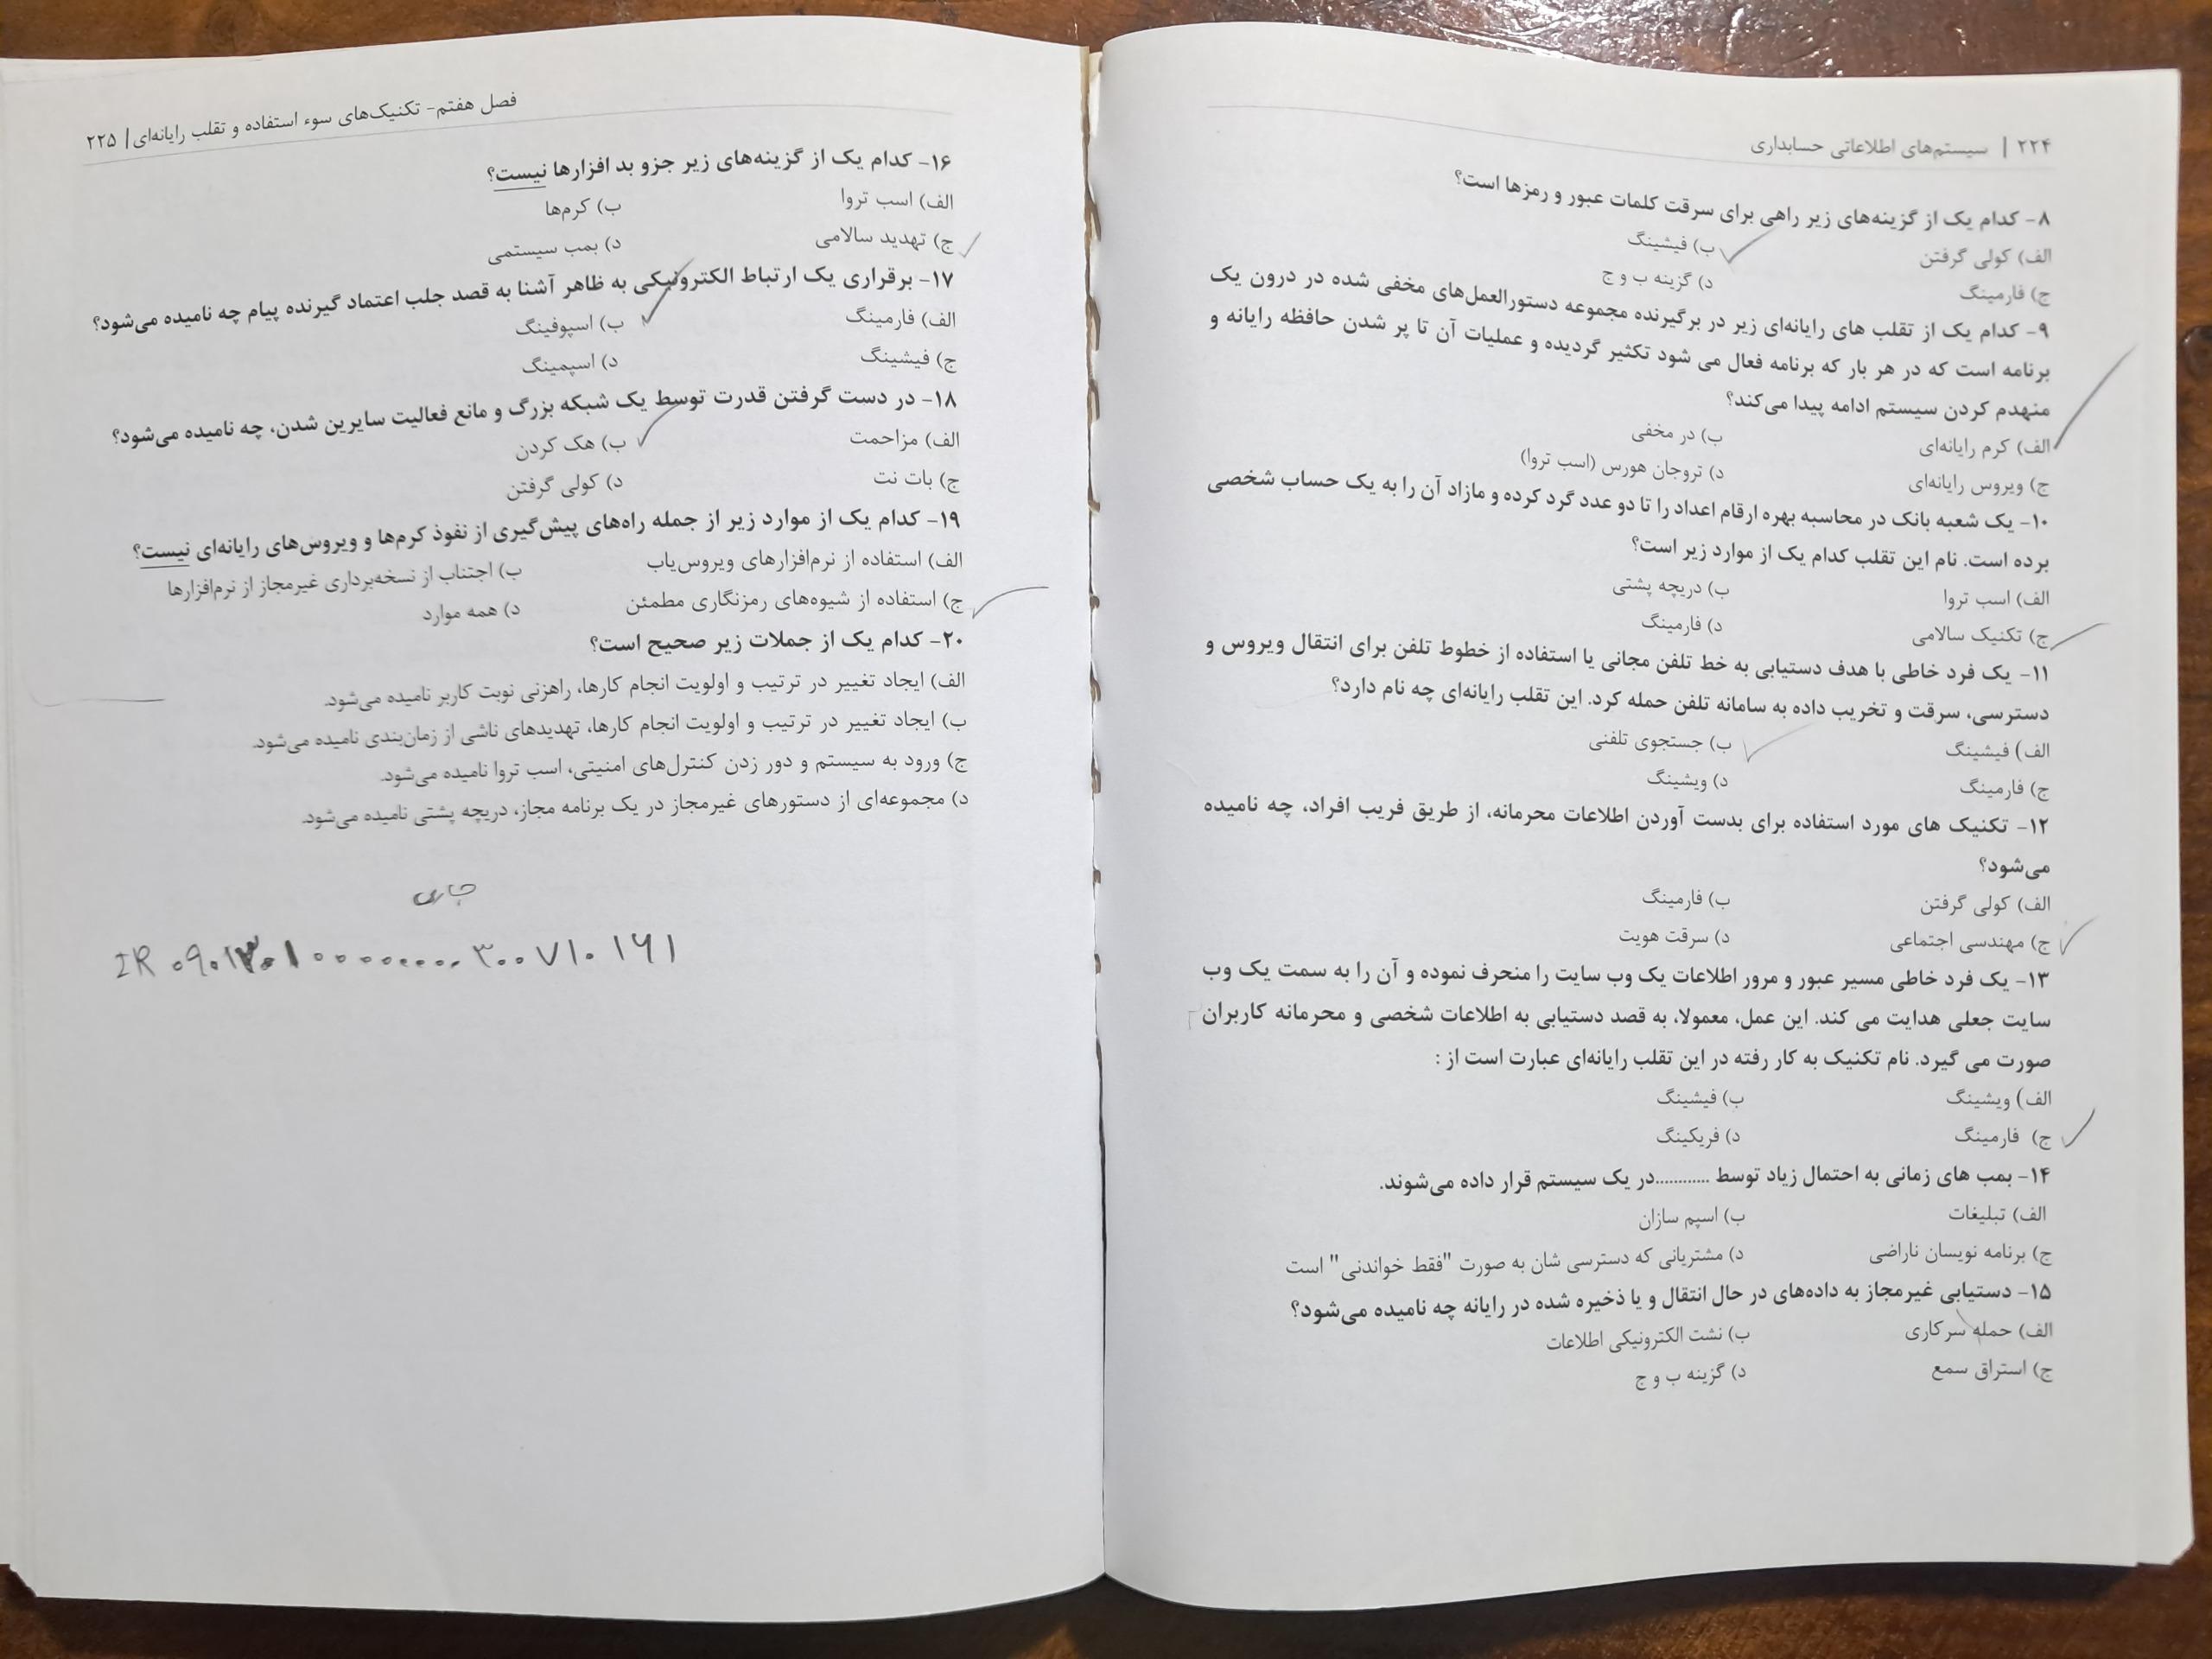 ۲۲۴ | سیستم‌های اطلاعاتی حسابداری
۸- کدام یک از گزینه‌های زیر راهی برای سرقت کلمات عبور و رمزها است؟
الف) کولی گرفتن ب) فیشینگ
ج) فارمینگ د) گزینه ب و ج
۹- کدام یک از تقلب های رایانه‌ای زیر در برگیرنده مجموعه دستورالعمل‌های مخفی شده در درون یک
برنامه است که در هر بار که برنامه فعال می شود تکثیر گردیده و عملیات آن تا پر شدن حافظه رایانه و
منهدم کردن سیستم ادامه پیدا می‌کند؟
الف) کرم رایانه‌ای ب) در مخفی
ج) ویروس رایانه‌ای د) تروجان هورس (اسب تروا)
۱۰- یک شعبه بانک در محاسبه بهره ارقام اعداد را تا دو عدد گرد کرده و مازاد آن را به یک حساب شخصی
برده است. نام این تقلب کدام یک از موارد زیر است؟
الف) اسب تروا ب) دریچه پشتی
ج) تکنیک سالامی د) فارمینگ
۱۱- یک فرد خاطی با هدف دستیابی به خط تلفن مجانی یا استفاده از خطوط تلفن برای انتقال ویروس و
دسترسی، سرقت و تخریب داده به سامانه تلفن حمله کرد. این تقلب رایانه‌ای چه نام دارد؟
الف) فیشینگ ب) جستجوی تلفنی
ج) فارمینگ د) ویشینگ
۱۲- تکنیک های مورد استفاده برای بدست آوردن اطلاعات محرمانه، از طریق فریب افراد، چه نامیده
می‌شود؟
الف) کولی گرفتن ب) فارمینگ
ج) مهندسی اجتماعی د) سرقت هویت
۱۳- یک فرد خاطی مسیر عبور و مرور اطلاعات یک وب سایت را منحرف نموده و آن را به سمت یک وب
سایت جعلی هدایت می کند. این عمل، معمولا، به قصد دستیابی به اطلاعات شخصی و محرمانه کاربران
صورت می گیرد. نام تکنیک به کار رفته در این تقلب رایانه‌ای عبارت است از :
الف) ویشینگ ب) فیشینگ
ج) فارمینگ د) فریکینگ
۱۴- بمب های زمانی به احتمال زیاد توسط ............در یک سیستم قرار داده می‌شوند.
الف) تبلیغات ب) اسپم سازان
ج) برنامه نویسان ناراضی د) مشتریانی که دسترسی شان به صورت "فقط خواندنی" است
۱۵- دستیابی غیرمجاز به داده‌های در حال انتقال و یا ذخیره شده در رایانه چه نامیده می‌شود؟
الف) حمله سرکاری ب) نشت الکترونیکی اطلاعات
ج) استراق سمع د) گزینه ب و ج
فصل هفتم- تکنیک‌های سوء استفاده و تقلب رایانه‌ای | ۲۲۵
۱۶- کدام یک از گزینه‌های زیر جزو بد افزارها نیست؟
الف) اسب تروا ب) کرم‌ها
ج) تهدید سالامی د) بمب سیستمی
۱۷- برقراری یک ارتباط الکترونیکی به ظاهر آشنا به قصد جلب اعتماد گیرنده پیام چه نامیده می‌شود؟
الف) فارمینگ ب) اسپوفینگ
ج) فیشینگ د) اسپمینگ
۱۸- در دست گرفتن قدرت توسط یک شبکه بزرگ و مانع فعالیت سایرین شدن، چه نامیده می‌شود؟
الف) مزاحمت ب) هک کردن
ج) بات نت د) کولی گرفتن
۱۹- کدام یک از موارد زیر از جمله راه‌های پیش‌گیری از نفوذ کرم‌ها و ویروس‌های رایانه‌ای نیست؟
الف) استفاده از نرم‌افزارهای ویروس‌یاب ب) اجتناب از نسخه‌برداری غیرمجاز از نرم‌افزارها
ج) استفاده از شیوه‌های رمزنگاری مطمئن د) همه موارد
۲۰- کدام یک از جملات زیر صحیح است؟
الف) ایجاد تغییر در ترتیب و اولویت انجام کارها، راهزنی نوبت کاربر نامیده می‌شود.
ب) ایجاد تغییر در ترتیب و اولویت انجام کارها، تهدیدهای ناشی از زمان‌بندی نامیده می‌شود.
ج) ورود به سیستم و دور زدن کنترل‌های امنیتی، اسب تروا نامیده می‌شود.
د) مجموعه‌ای از دستورهای غیرمجاز در یک برنامه مجاز، دریچه پشتی نامیده می‌شود.
IR